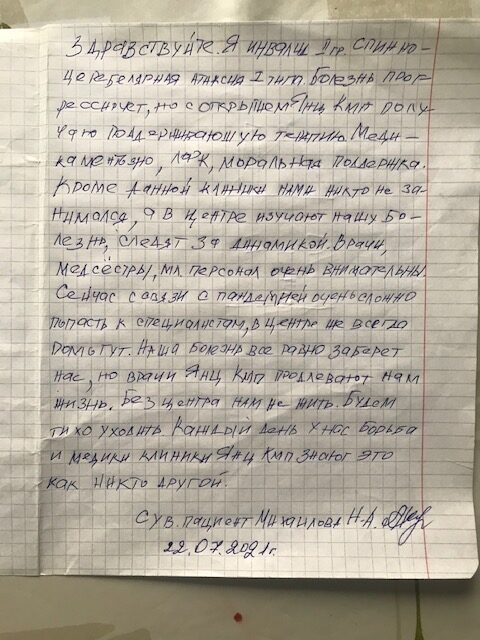 Здравствуйте. Я инвалид II гр. спинно-
церебеларная атаксия I типа. Болезнь прог-
рессирует, но с открытием ЯНЦ КМП полу-
чаю поддерживающую терапию. Меди-
каментозно, ЛФК, моральная поддержка.
Кроме данной клиники нами никто не за-
нимался, а в центре изучают нашу бо-
лезнь, следят за динамикой. Врачи,
медсёстры, мл. персонал очень внимательны.
Сейчас с связи с пандемией очень сложно
попасть к специалистам, в центре же всегда
помогут. Наша болезнь все равно заберет
нас, но врачи ЯНЦ КМП продлевают нам
жизнь. Без центра нам не жить. Будем
тихо уходить. Каждый день у нас борьба
и медики клиники ЯНЦ КМП знают это
как никто другой.
С ув. пациент Михайлова Н.А.
22.07.2021г.